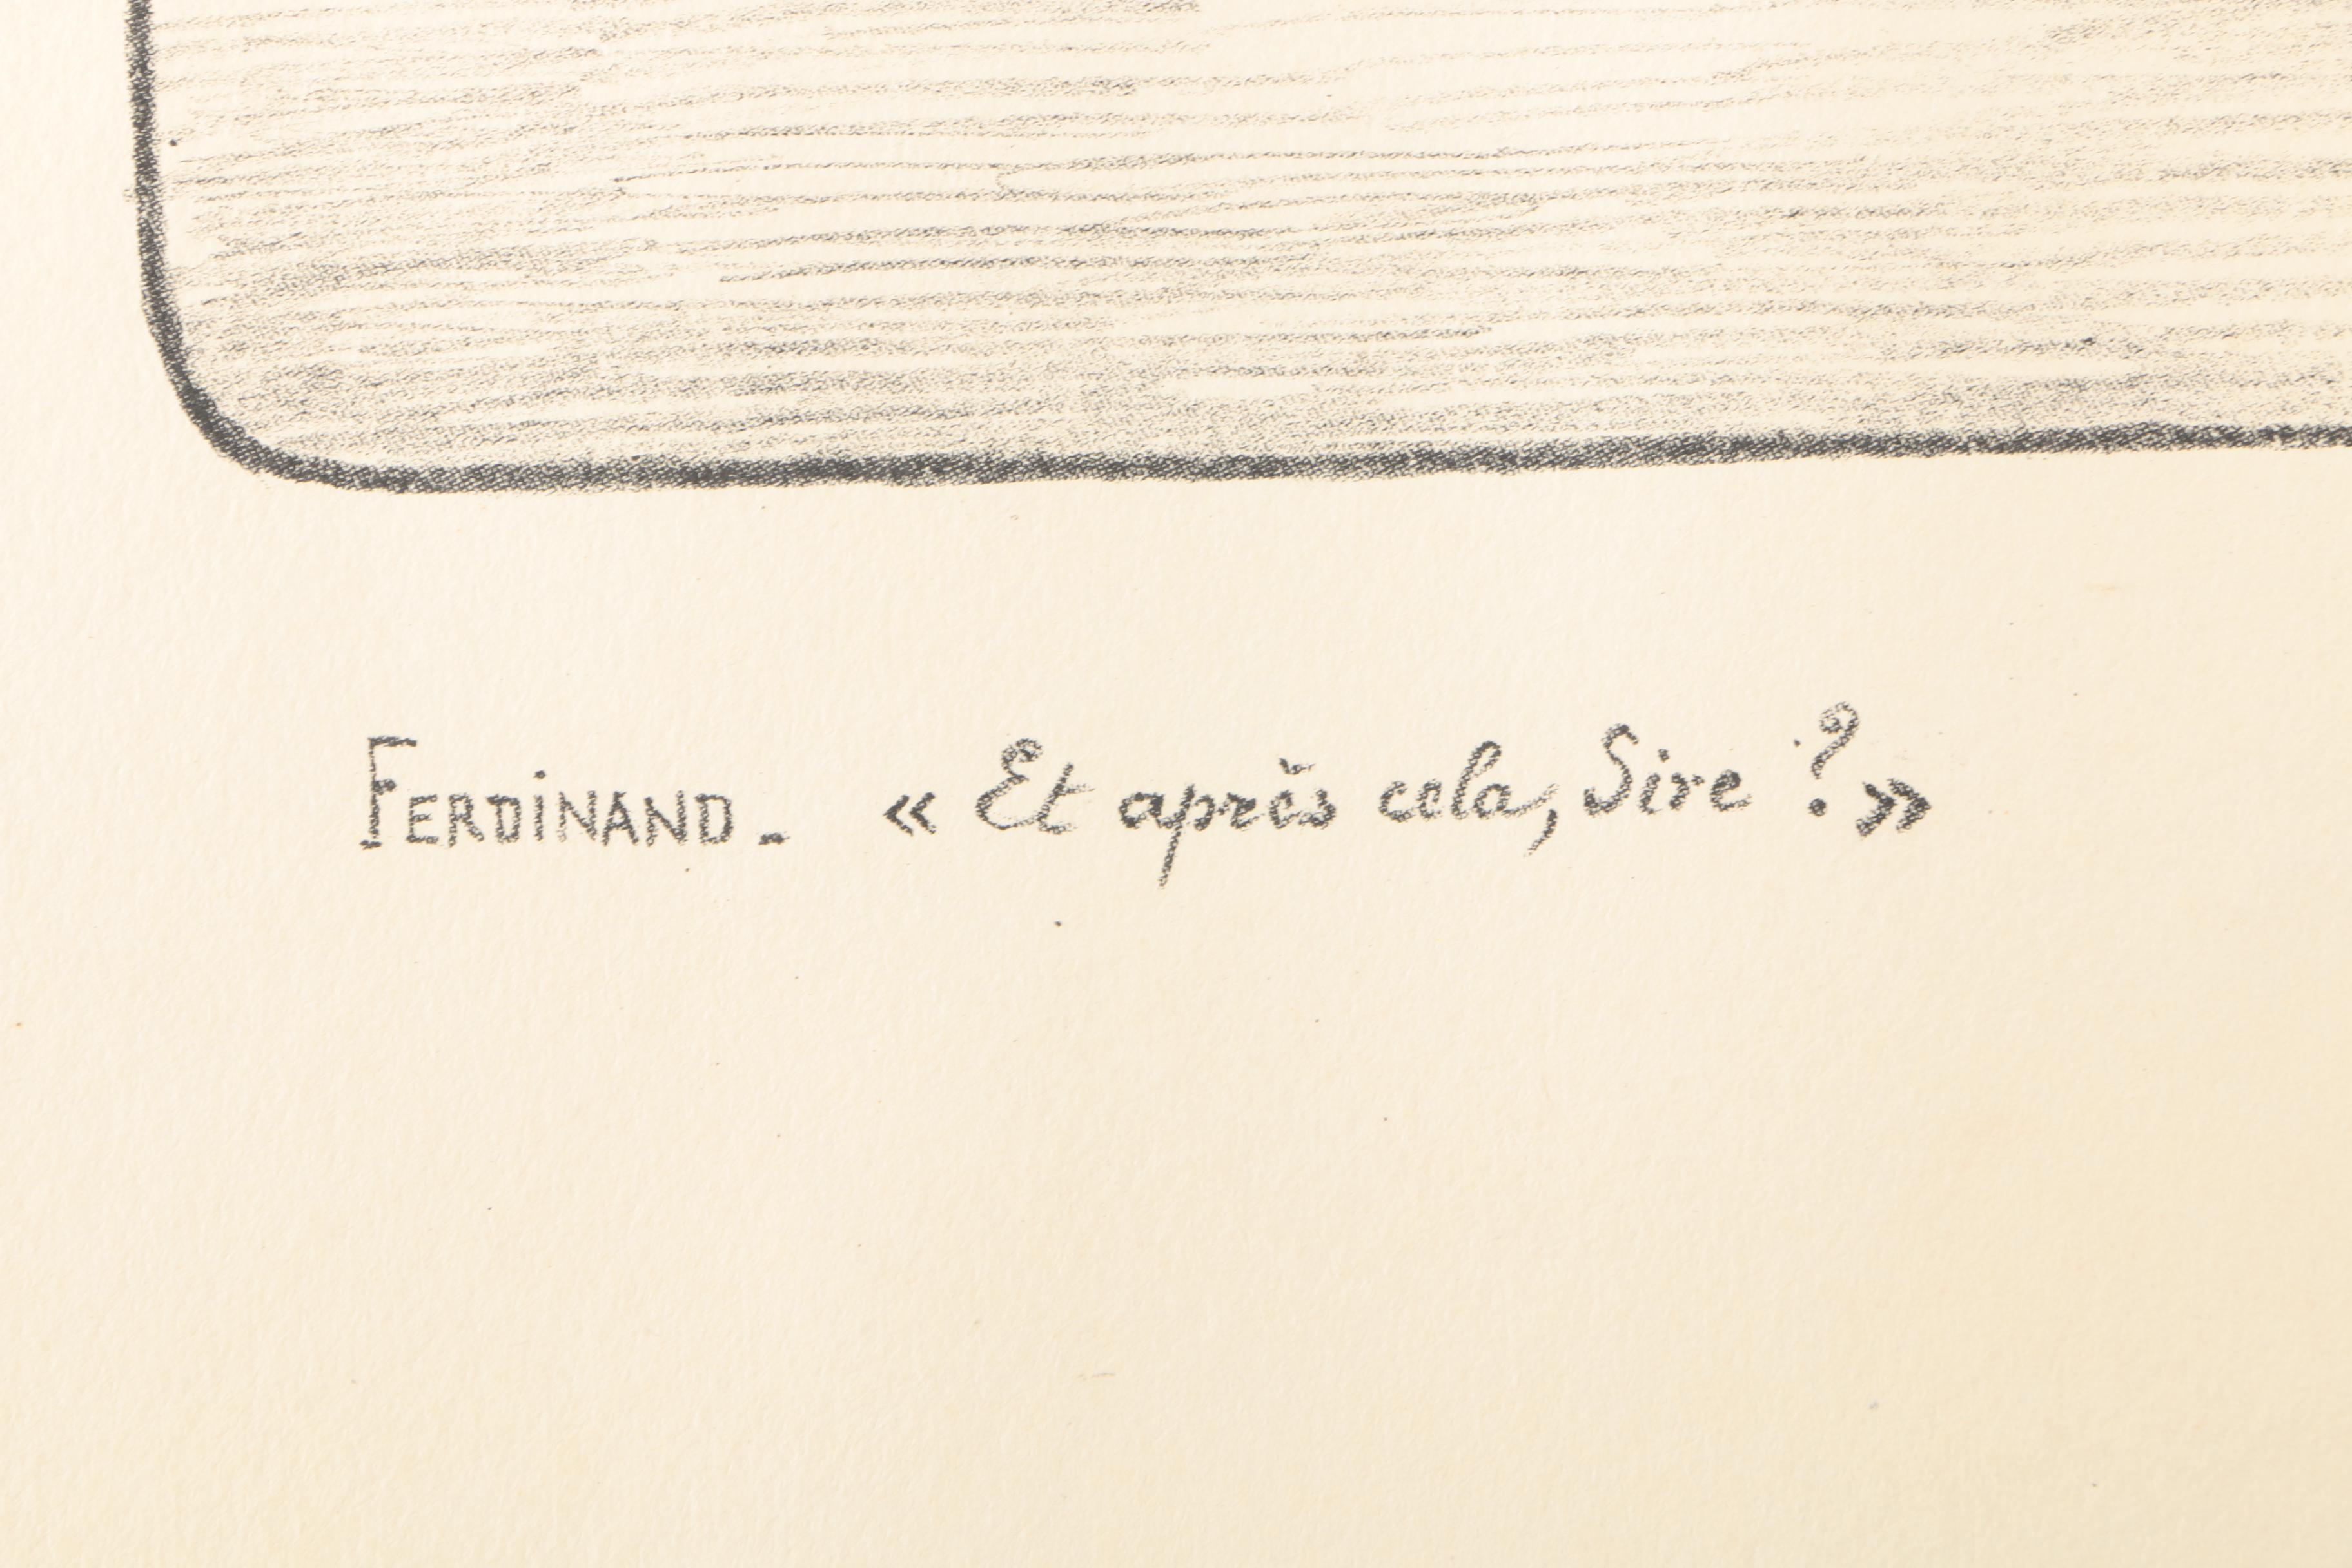 FERDINAND. « Et après cela, Sire ? »